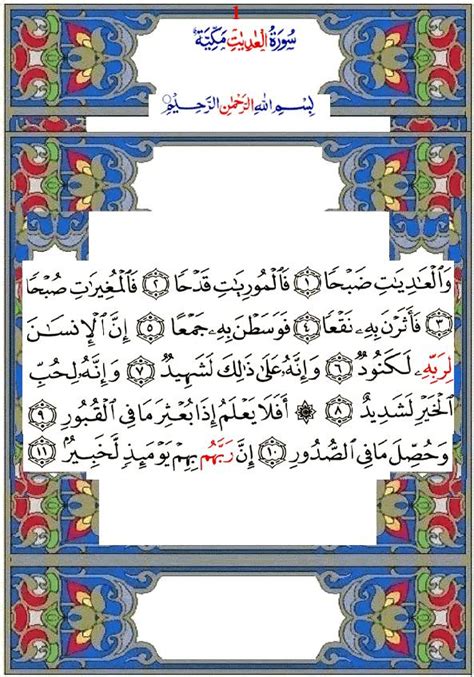 1
سُورَةُ الْعٰدِيٰتِ مَكِّيَّةٌ
بِسْمِ اللهِ الرَّحْمٰنِ الرَّحِيْمِ
وَٱلْعَٰدِيَٰتِ ضَبْحًا ۝١ فَٱلْمُورِيَٰتِ قَدْحًا ۝٢ فَٱلْمُغِيرَٰتِ صُبْحًا
۝٣ فَأَثَرْنَ بِهِۦ نَقْعًا ۝٤ فَوَسَطْنَ بِهِۦ جَمْعًا ۝٥ إِنَّ ٱلْإِنسَٰنَ
لِرَبِّهِۦ لَكَنُودٌ ۝٦ وَإِنَّهُۥ عَلَىٰ ذَٰلِكَ لَشَهِيدٌ ۝٧ وَإِنَّهُۥ لِحُبِّ
ٱلْخَيْرِ لَشَدِيدٌ ۝٨ ۞ أَفَلَا يَعْلَمُ إِذَا بُعْثِرَ مَا فِى ٱلْقُبُورِ ۝٩
وَحُصِّلَ مَا فِى ٱلصُّدُورِ ۝١٠ إِنَّ رَبَّهُم بِهِمْ يَوْمَئِذٍ لَّخَبِيرٌۢ ۝١١